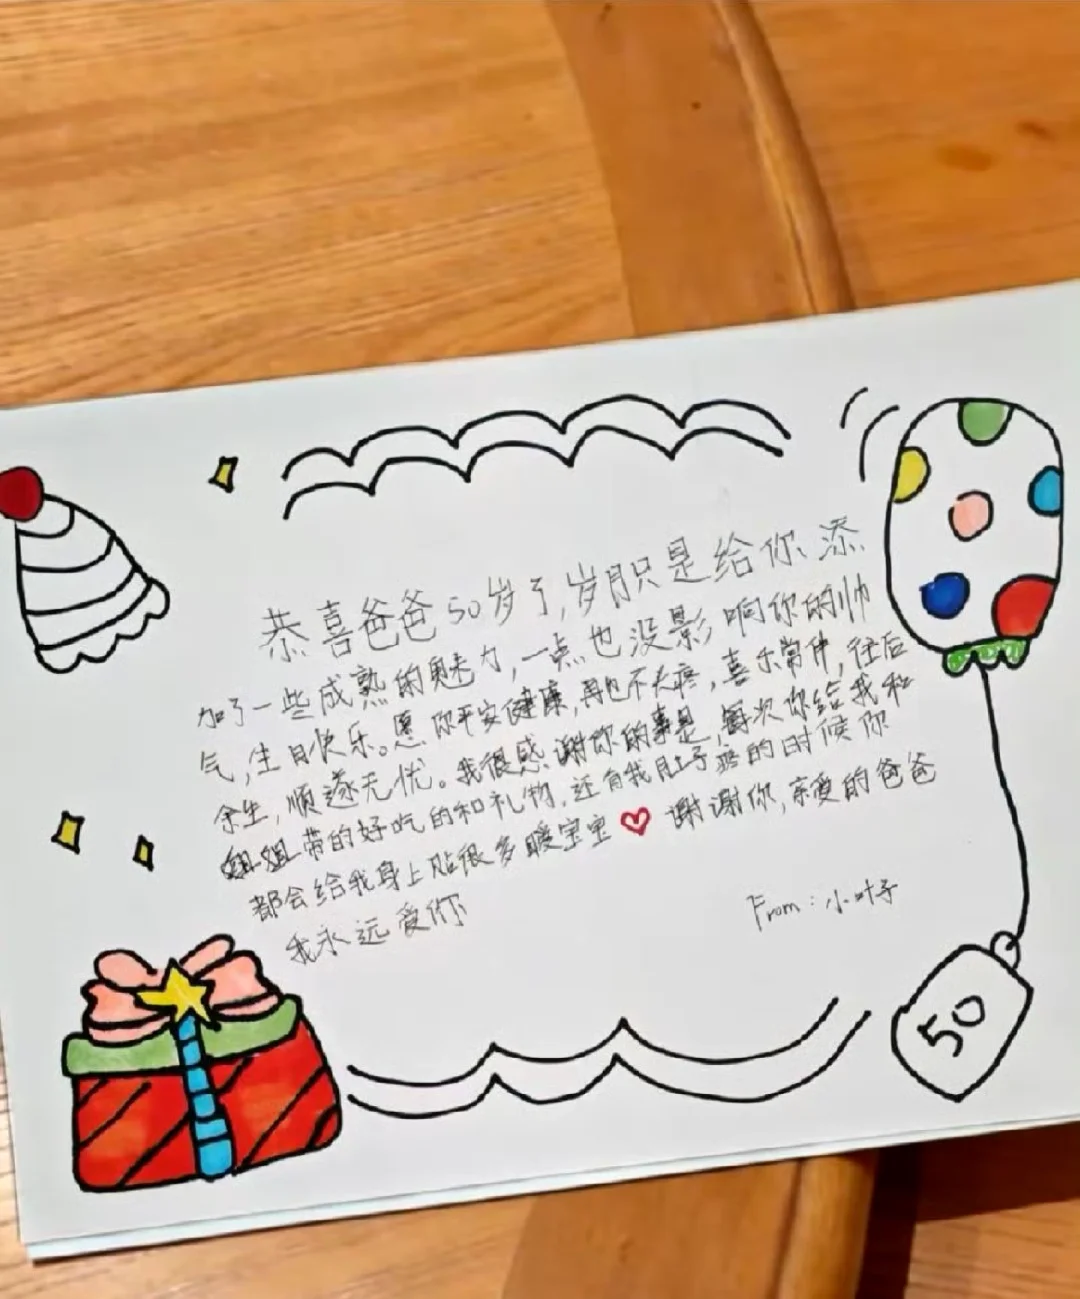 恭喜爸爸50岁了,岁月只是给你添
加了一些成熟的魅力,一点也没影响你的帅
气,生日快乐。愿你平安健康,再也不头疼,喜乐常伴,往后
余生,顺遂无忧。我很感谢你的事是,每次你给我和
姐姐带的好吃的和礼物,还有我肚子疼的时候你
都会给我身上贴很多暖宝宝♡ 谢谢你,亲爱的爸爸
我永远爱你
From:小叶子
50